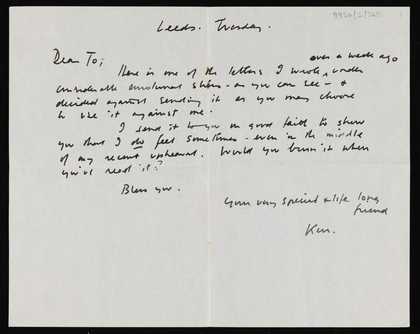 Leeds. Tuesday.
Dear To;
Here is one of the letters I wrote, under
over a week ago
considerable emotional stress - as you can see - &
decided against sending it as you may choose
to use it against me.
I send it to you in good faith to show
you that I do feel sometimes - even in the middle
of my recent upheaval. Would you burn it when
you've read it?
Bless you.
Your very special & life long
friend
Ken.